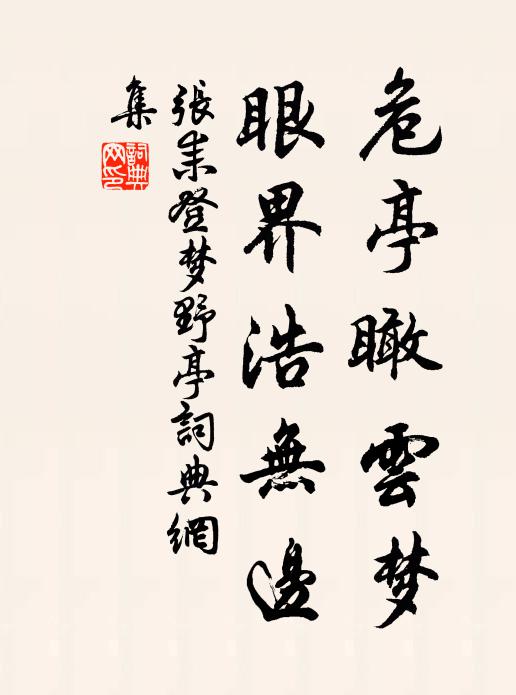 危亭瞰雲梦
眼界浩無邊
張耒登梦野亭詞典網
集
詞典
网印